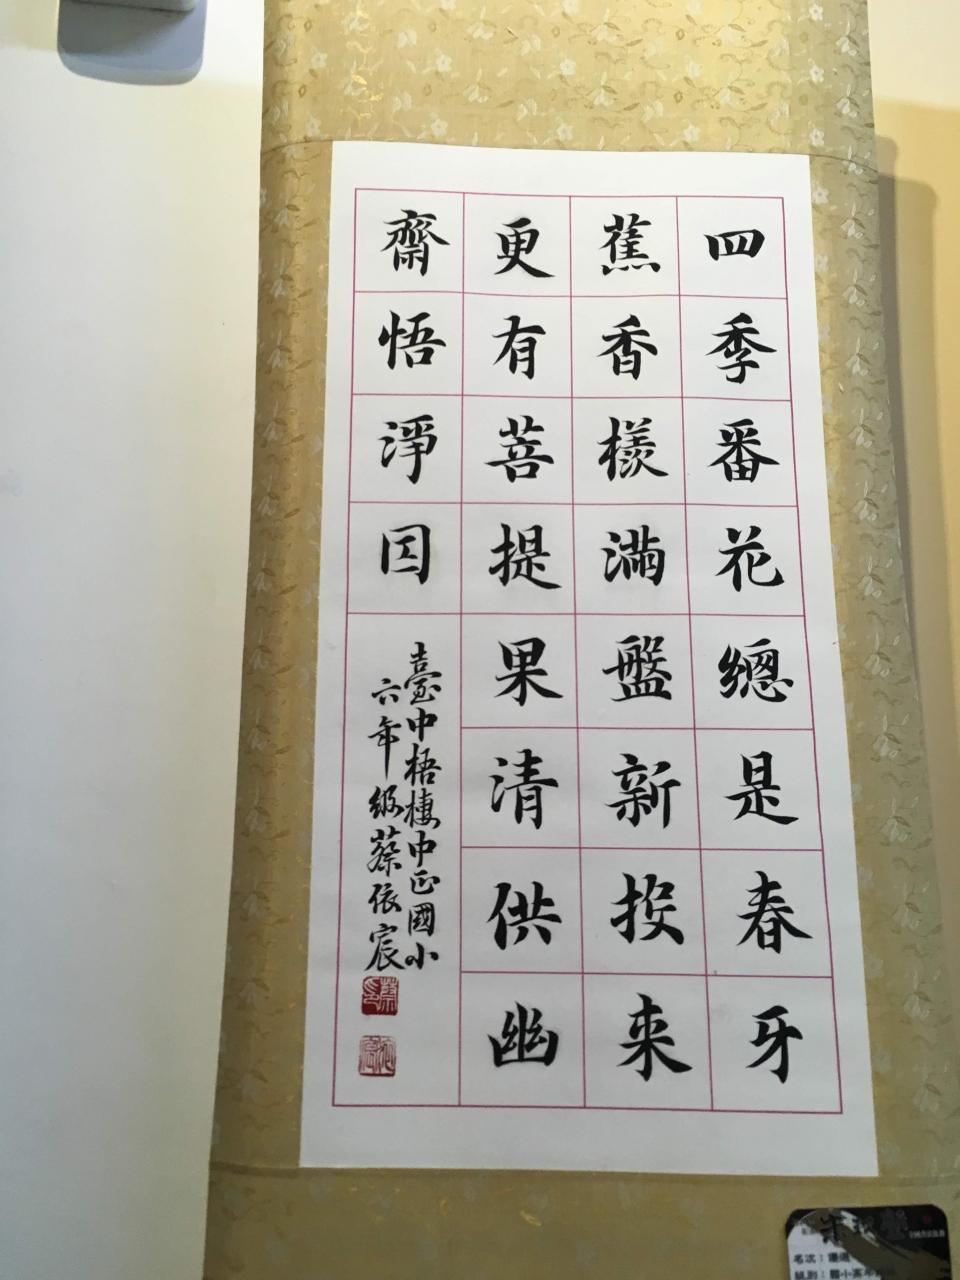 四季番花總是春牙
蕉香樣滿盤新投来
更有菩提果清供幽
齋悟淨因
臺中梧棲中正國小
六年級蔡依宸
名次：優選